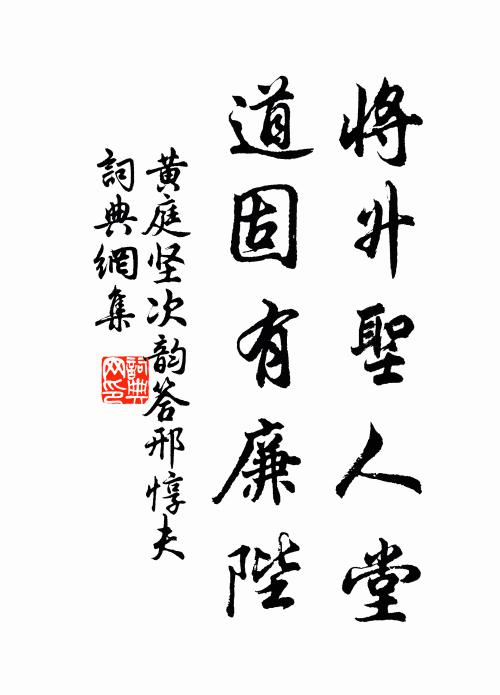 將升聖人堂
道固有廉陛
黄庭坚次韵答邢惇夫
詞典網集
詞典网印